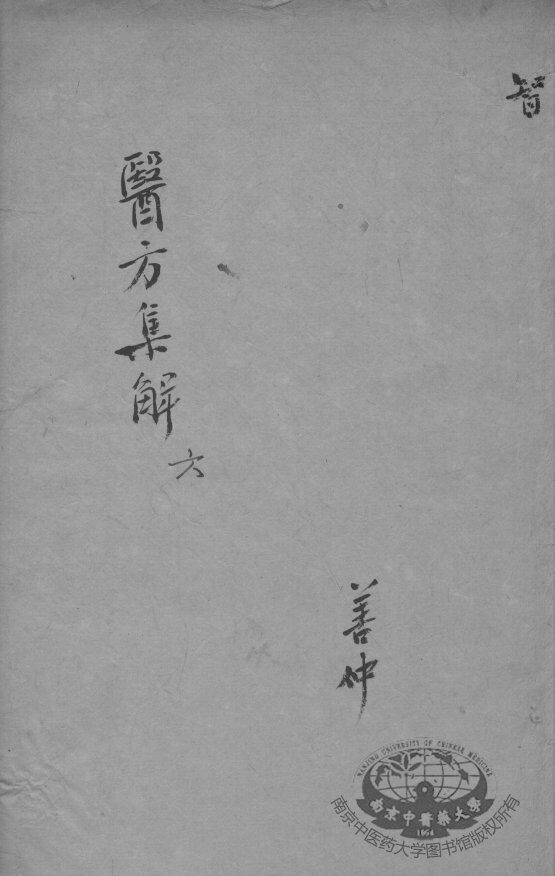 智
醫方集解
六
善仲
NANJING UNIVERSITY OF CHINESE MEDICINE
南京中醫藥大學
1954
南京中医药大学图书馆版权所有